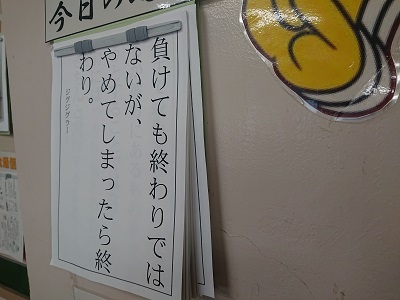 今日の
負けても終わりでは
ないが、
やめてしまったら終
わり。
ジグジグラー